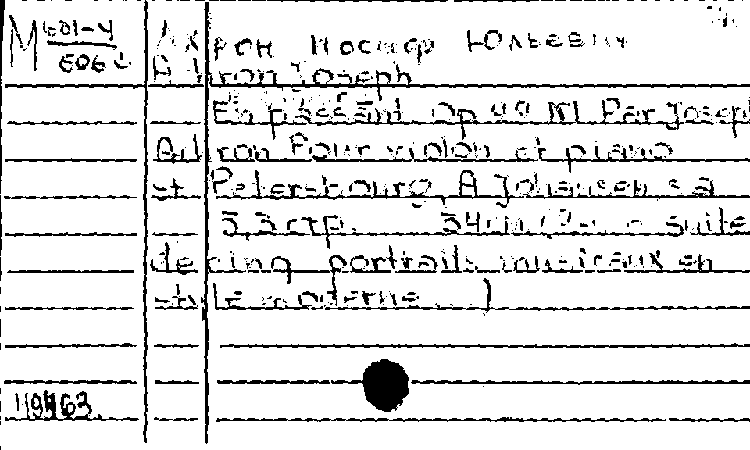 M 601-4
606
Ахрон Иосиф Юльевич
Achron Joseph
En passant Op 49 №1 Par Joseph
Achron Pour violon et piano
st Petersbourg, A Johansen, s.a
3,3 стр. 34cm (2-me suite
de cinq portraits musicaux en
style moderne )
119463.